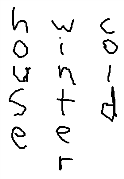 house
winter
cold